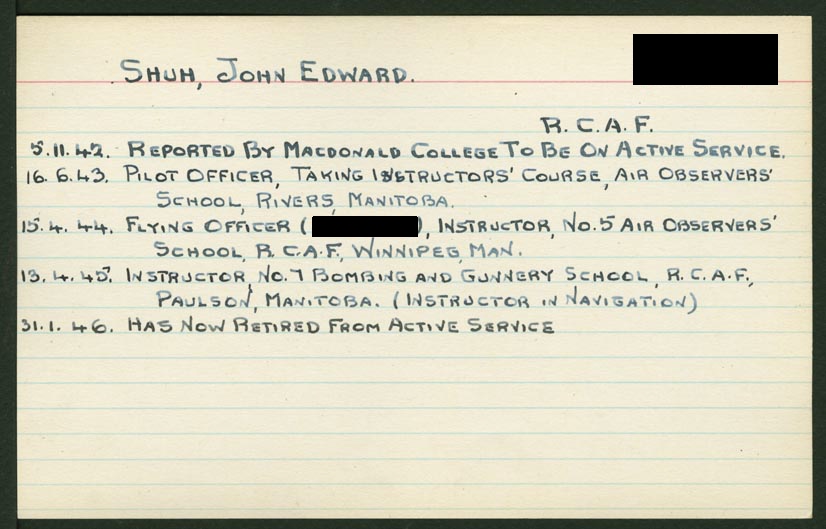 SHUH, JOHN EDWARD.
R.C.A.F.
5.11.42. REPORTED BY MACDONALD COLLEGE TO BE ON ACTIVE SERVICE.
16.6.43. PILOT OFFICER, TAKING INSTRUCTORS' COURSE, AIR OBSERVERS'
SCHOOL, RIVERS, MANITOBA.
15.4.44. FLYING OFFICER ( ), INSTRUCTOR, NO.5 AIR OBSERVERS'
SCHOOL, R.C.A.F., WINNIPEG, MAN.
13.4.45. INSTRUCTOR, NO.7 BOMBING AND GUNNERY SCHOOL, R.C.A.F.,
PAULSON, MANITOBA. (INSTRUCTOR IN NAVIGATION)
31.1.46. HAS NOW RETIRED FROM ACTIVE SERVICE